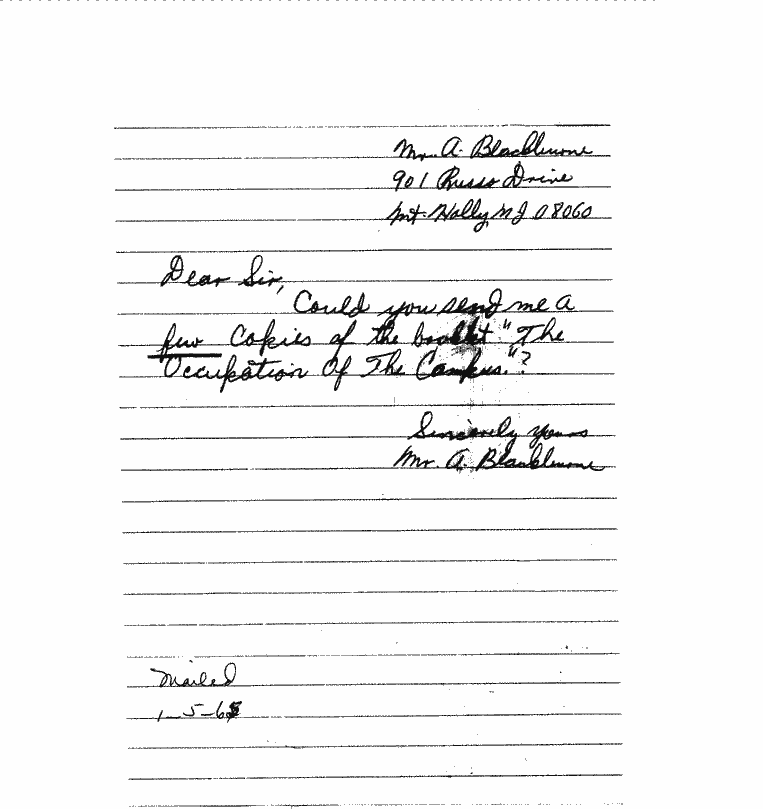 Mr. A. Blackburne
901 Russo Drive
Mt. Holly, NJ 08060
Dear Sir,
Could you send me a
few Copies of the booklet "The
Occupation Of The Campus."?
Sincerely yours
Mr. A. Blackburne
Mailed
1-5-6